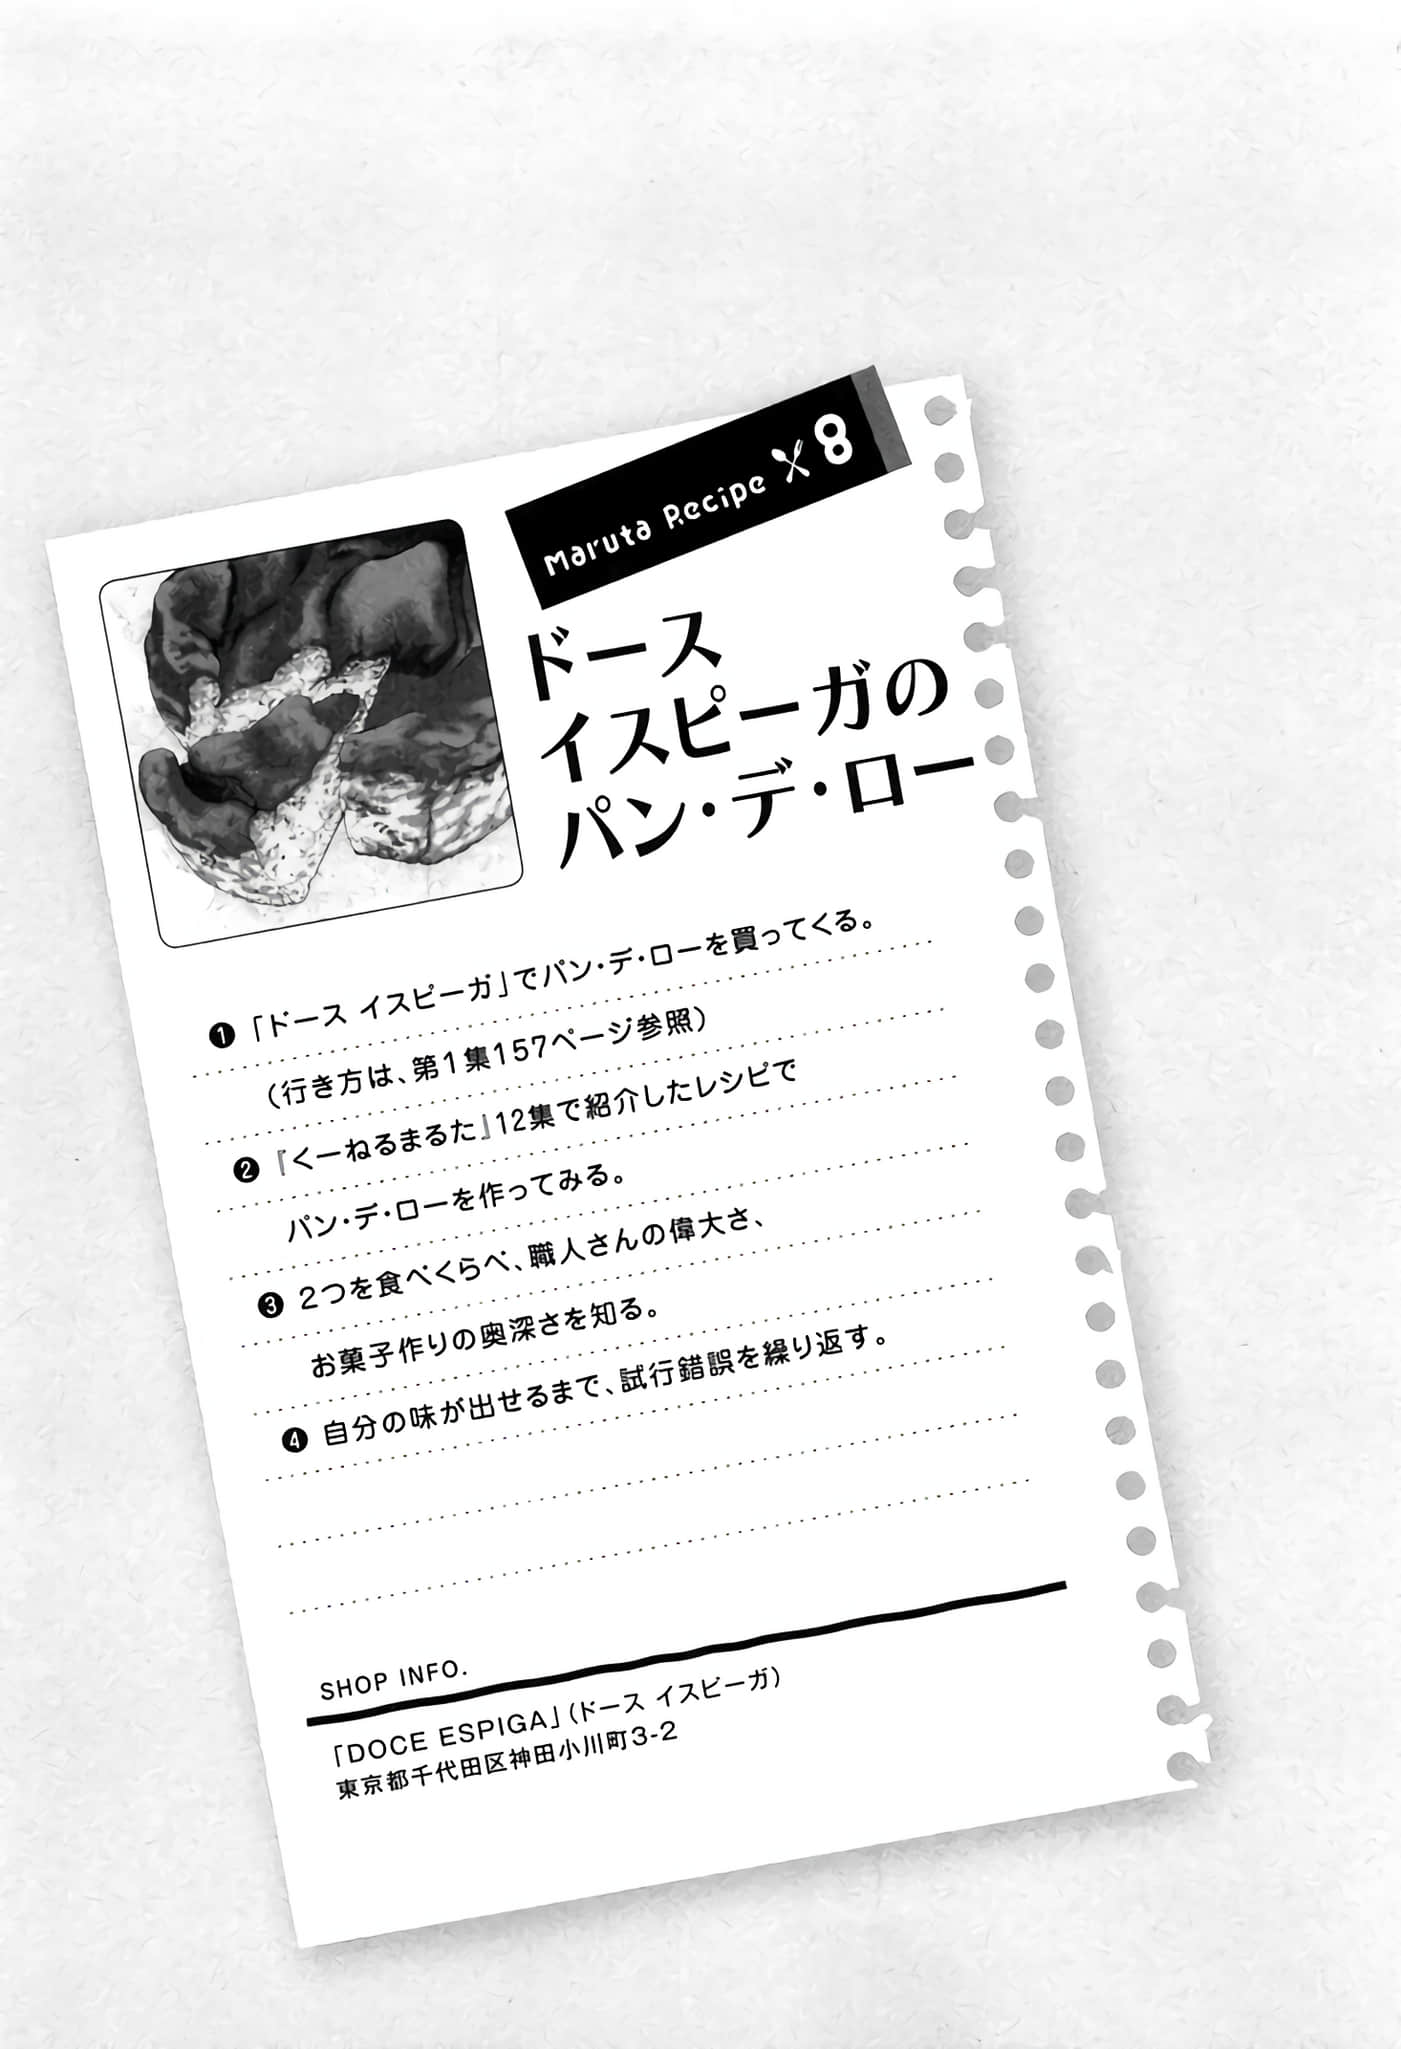 Maruta Recipe 8
ドース
イスピーガの
パン・デ・ロー
❶「ドース イスピーガ」でパン・デ・ローを買ってくる。
（行き方は、第1集157ページ参照）
❷『くーねるまるた』12集で紹介したレシピで
パン・デ・ローを作ってみる。
❸ 2つを食べくらべ、職人さんの偉大さ、
お菓子作りの奥深さを知る。
❹ 自分の味が出せるまで、試行錯誤を繰り返す。
SHOP INFO.
「DOCE ESPIGA」（ドース イスピーガ）
東京都千代田区神田小川町3-2